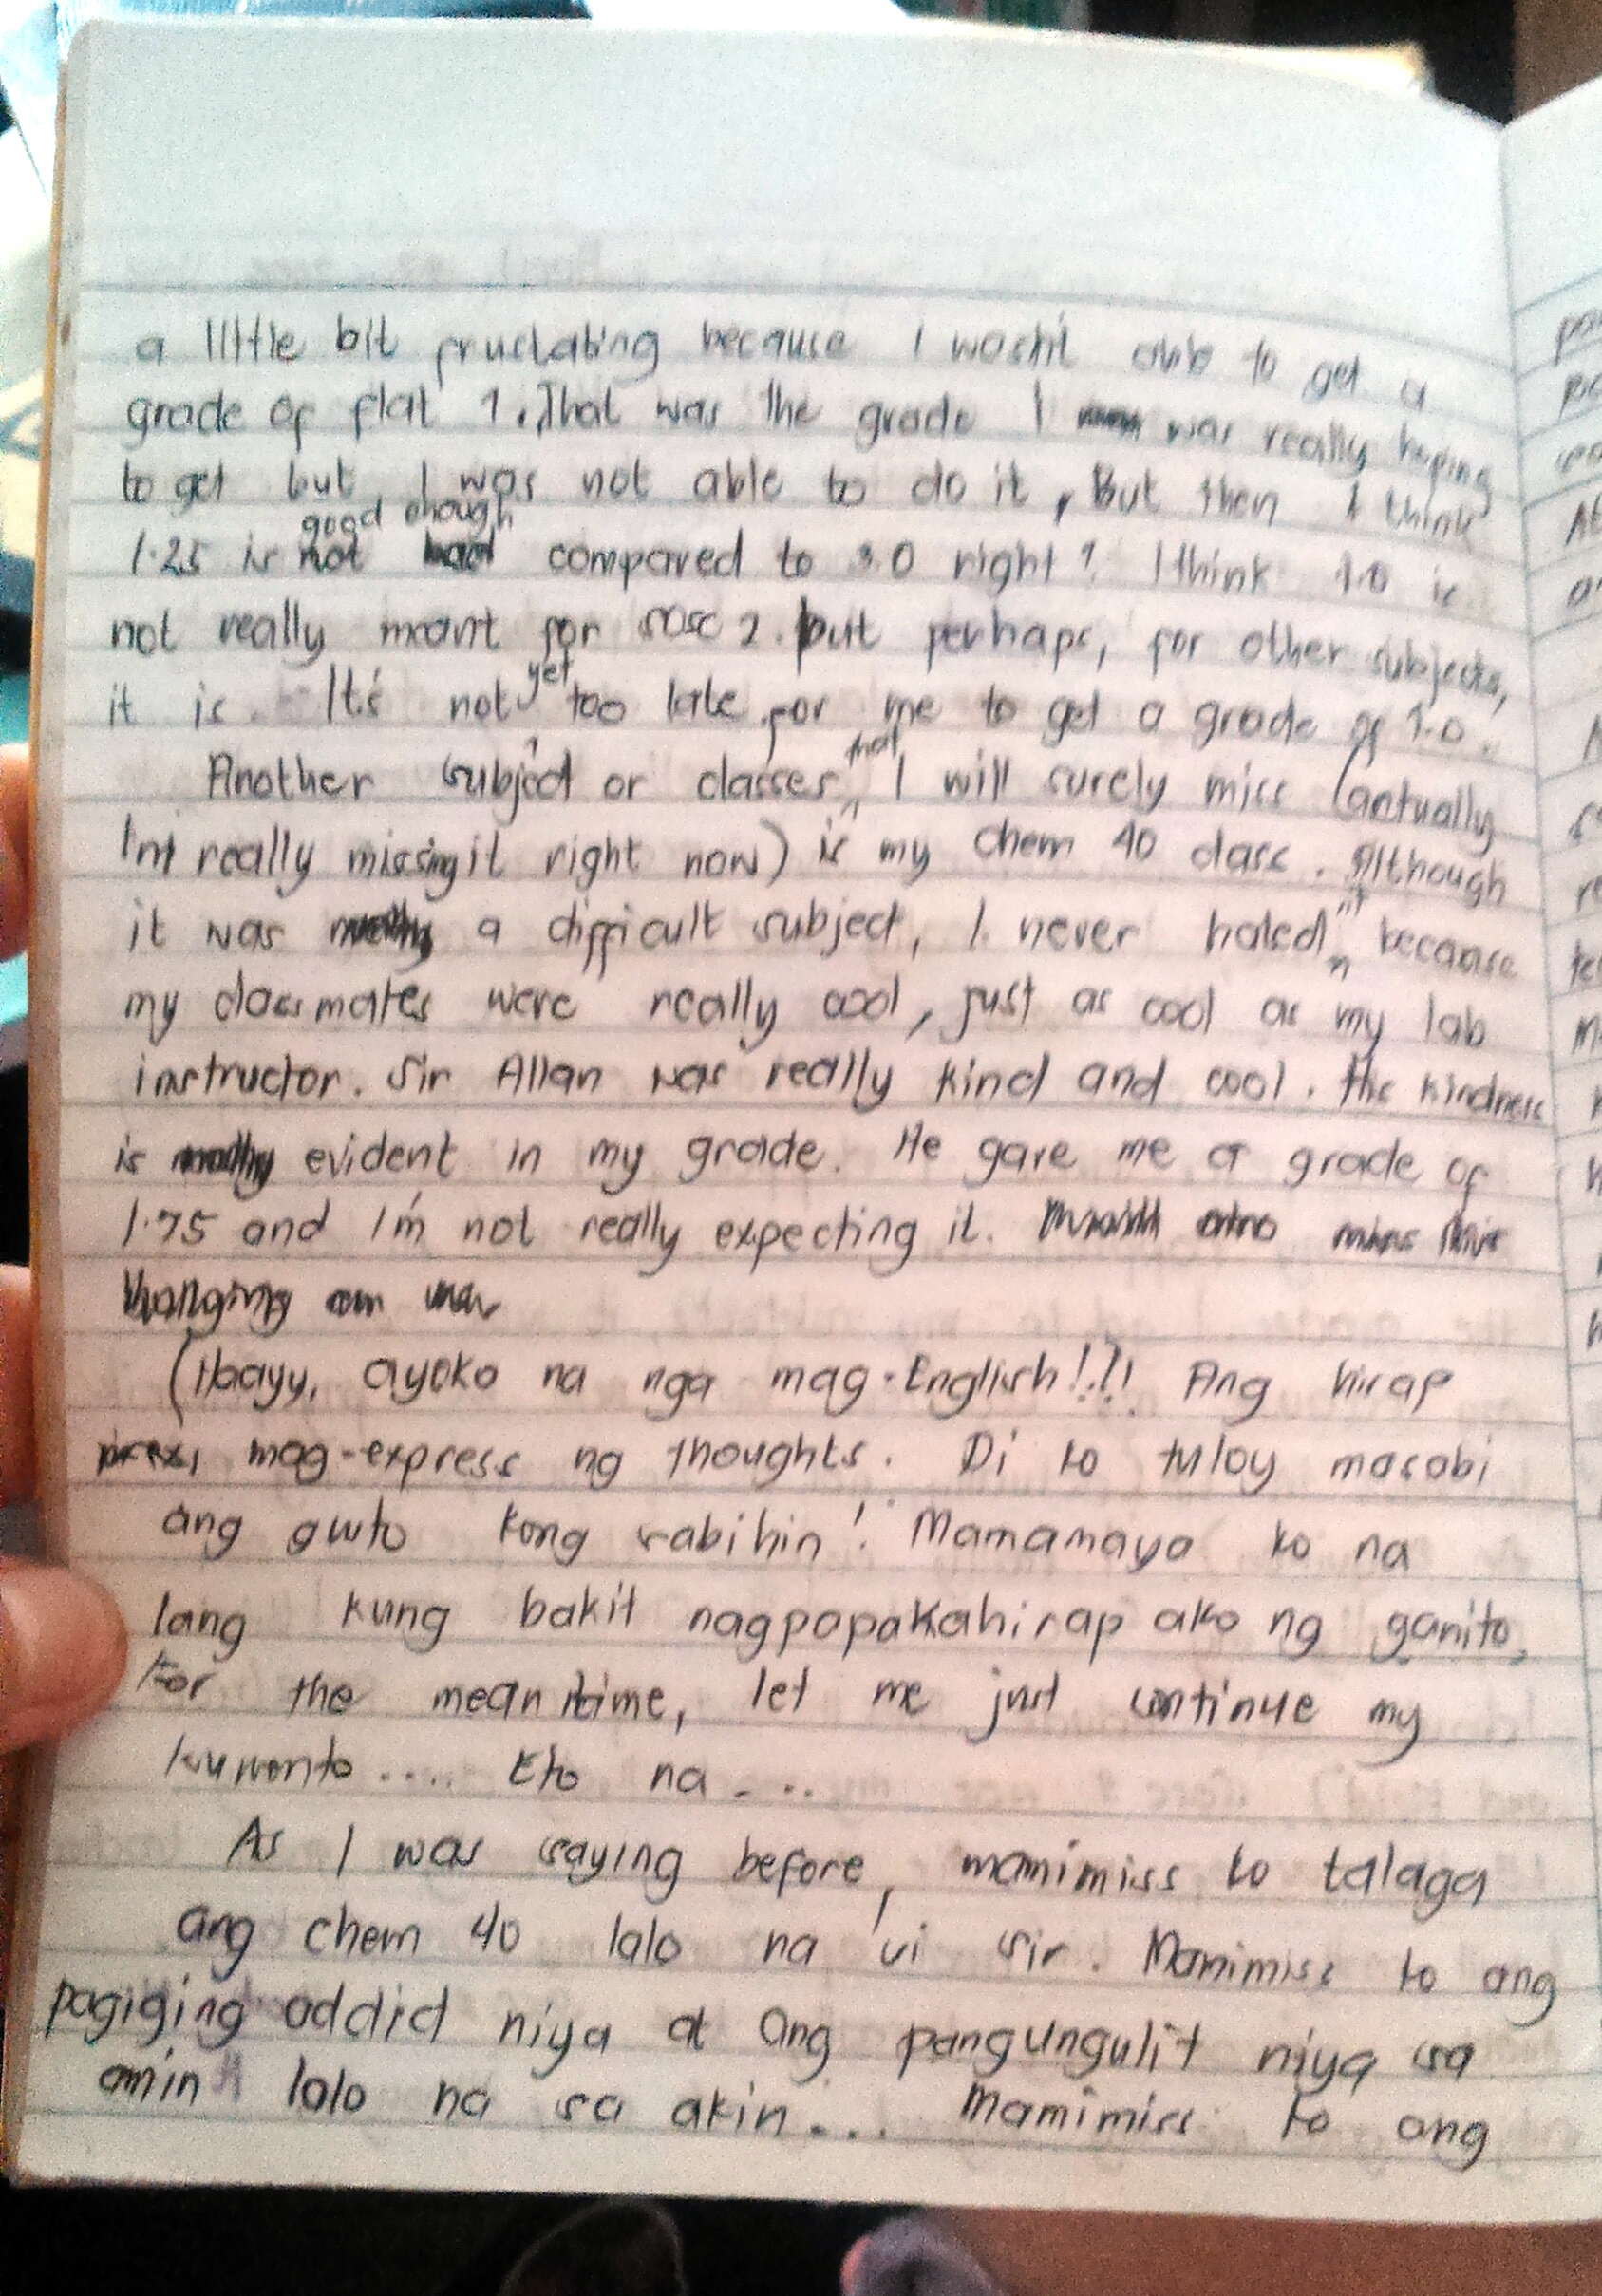 a little bit frustating because I wasn't able to get a
grade of flat 1. That was the grade I was really hoping
to get but I was not able to do it, But then I think
1.25 is good enough compared to 3.0 right? I think 1.0 is
not really meant for sosc 2. but perhaps, for other subjects,
it is. It's not yet too late for me to get a grade of 1.0.
Another subject or classes that I will surely miss (actually
I'm really missing it right now) is my chem 40 class. Although
it was a difficult subject, I never hated it because
my classmates were really cool, just as cool as my lab
instructor. Sir Allan was really kind and cool. His kindness
is evident in my grade. He gave me a grade of
1.75 and I'm not really expecting it.
ayoko na nga mag-English!?! Ang hirap
mag-express ng thoughts. Di ko tuloy masabi
ang gusto kong sabihin! Mamamaya ko na
lang kung bakit nagpapakahirap ako ng ganito.
For the mean time, let me just continue my
kuwento .... Eto na ...
As I was saying before, mamimiss ko talaga
ang chem 40 lalo na si sir. Mamimiss ko ang
pagiging addict niya at ang pangungulit niya sa
amin lalo na sa akin... Mamimiss ko ang